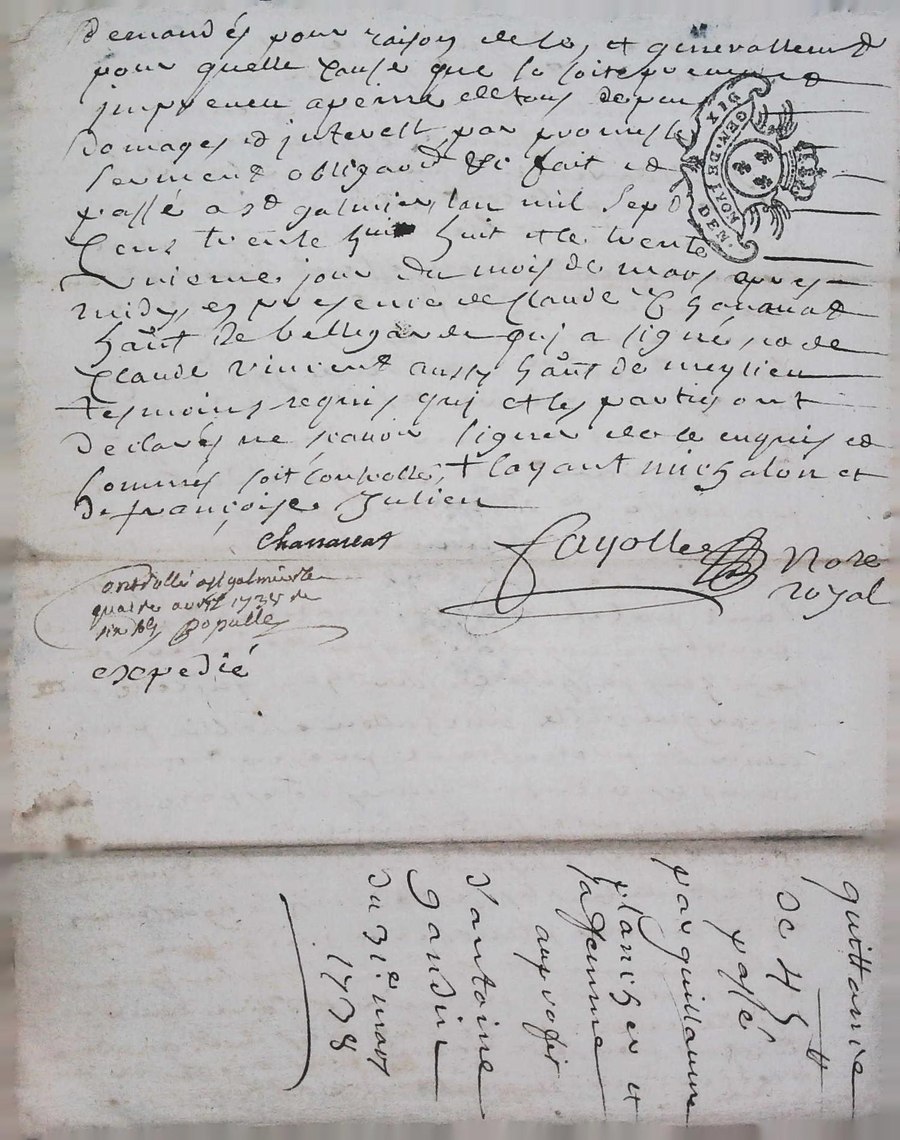 demandés pour raison de ce, et generallement
pour quelle cause que ce soit
impreveu a peine de tous depans
Domages et interest, par promesse
serment obligaon &c fait et
passé a st galmier, lan mil sept
Cens trente huit et le trente
unieme jour du mois de mars apres
midy, en presence de Claude Chanavat
hant de bellegarde qui a signé, et de
Claude vincent aussy hant de meylieu
tesmoins requis qui et les parties ont
declarés ne scavoir signer de ce enquis et
sommés soit controllé, + layant michalon et
de françoise Julien
Chanavat
Fayolle Nore
royal
Controllé a st galmier le
quatre avril 1738 
six Populle
expedié
GEN. DE LYON
DIX DEN.
quittance
de 45 ₶
passé
par guillaume
planicher et
sa femme
au profit
d'antoine
gaudin
du 31e mars
1738